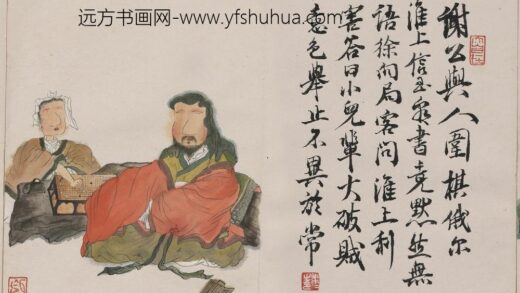 远方书画网-www.yfshuhua.com
謝公與人圍棋俄尔
淮上信至看書竟默然無
語徐向局客問淮上利
害答曰小兒輩大破賊
意色舉止不異於常